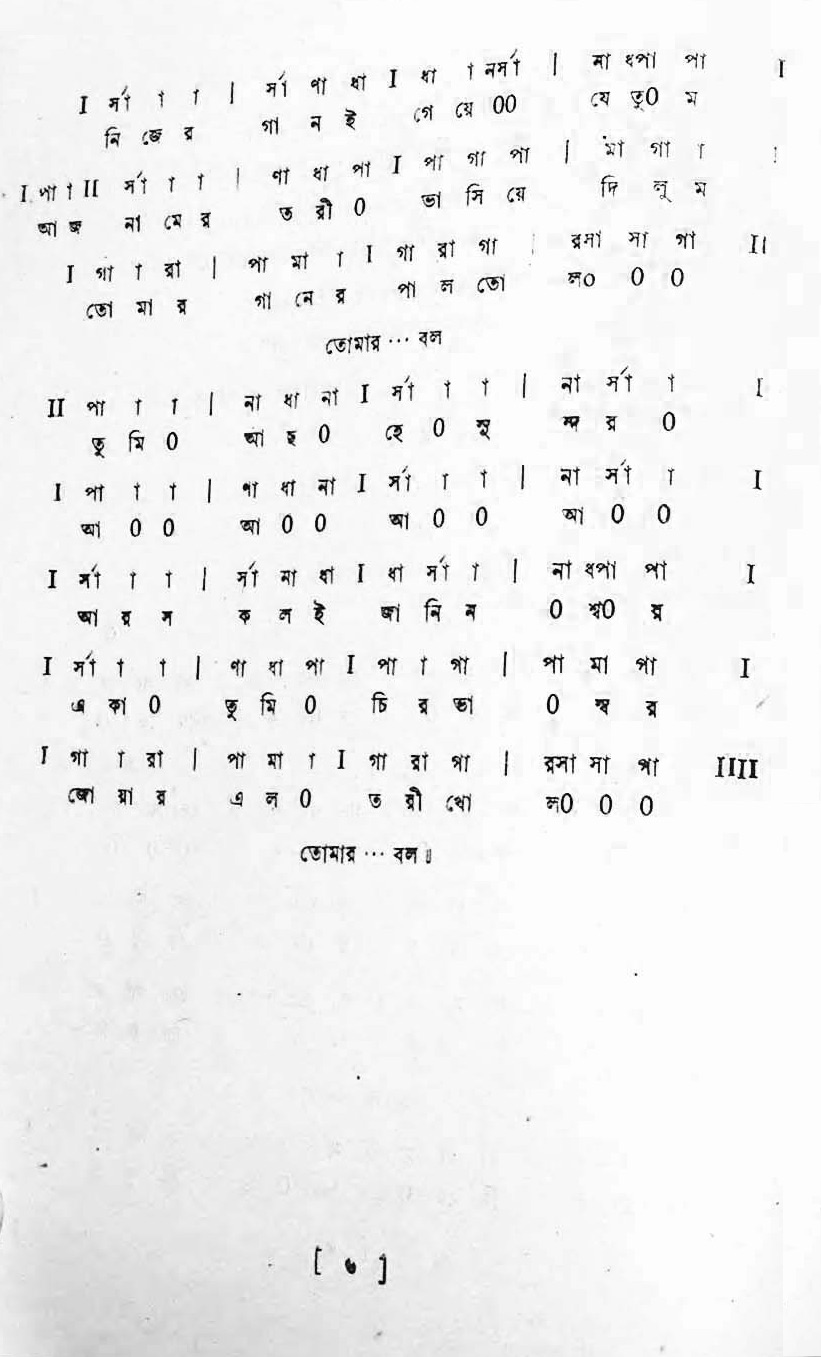 I র্সা া া | র্সা ণা ধা I ধা া নর্সা | না ধপা পা I
নি জে র গা ন ই গে য়ে 00 যে তু0 ম
I পা া II র্সা া া | ণা ধা পা I পা গা পা | মা গা া I
আ জ না মে র ত রী 0 ভা সি য়ে দি লু ম
I গা া রা | পা মা া I গা রা গা | রসা সা গা II
তো মা র গা নে র পা ল তো ল০ 0 0
তোমার ··· বল
II পা া া | না ধা না I র্সা া া | না র্সা া I
তু মি 0 আ ছ 0 হে 0 সু ন্দ র 0
I পা া া | ণা ধা না I র্সা া া | না র্সা া I
আ 0 0 আ 0 0 আ 0 0 আ 0 0
I র্সা া া | র্সা মা ধা I ধা র্সা া | না ধপা পা I
আ র স ক ল ই জা নি ন 0 শ্ব0 র
I র্সা া া | ণা ধা পা I পা া গা | পা মা পা I
এ কা 0 তু মি 0 চি র ভা 0 স্ব র
I গা া রা | পা মা া I গা রা গা | রসা সা গা IIII
জো য়া র এ ল 0 ত রী খো ল0 0 0
তোমার ··· বল॥
[ ৬ ]